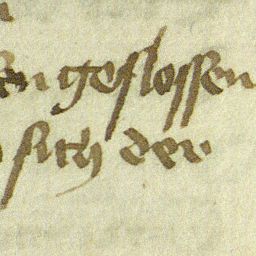 en geslossen
sich der